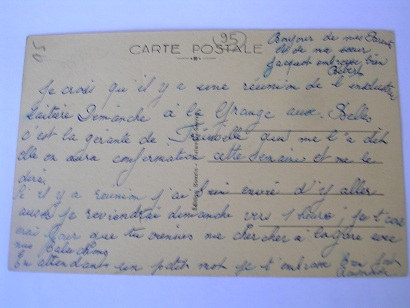 95
Bonjour de mes Parents
et de ma sœur
Jacquot embrasse bien
CARTE POSTALE
Je crois qu'il y a une réunion de l'industrie
laitière Dimanche à la Grange aux Belles
c'est la gérante de qui me l'a dit
elle en aura confirmation cette semaine et me le
dira
Si il y a réunion j'ai bien envie d'y aller
aussi je reviendrai dimanche vers 1 heure, je
que tu viennes me chercher à la gare avec
mes
En attendant un petit mot je t'embrasse bien fort